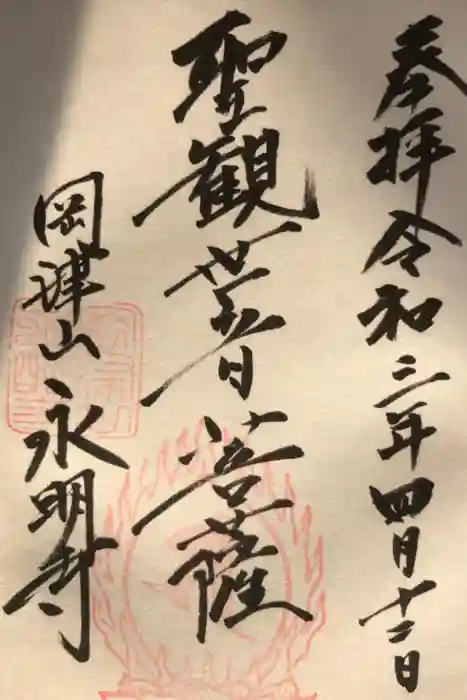 奉拝 令和三年四月十二日
聖観世音菩薩
岡津山 永明寺